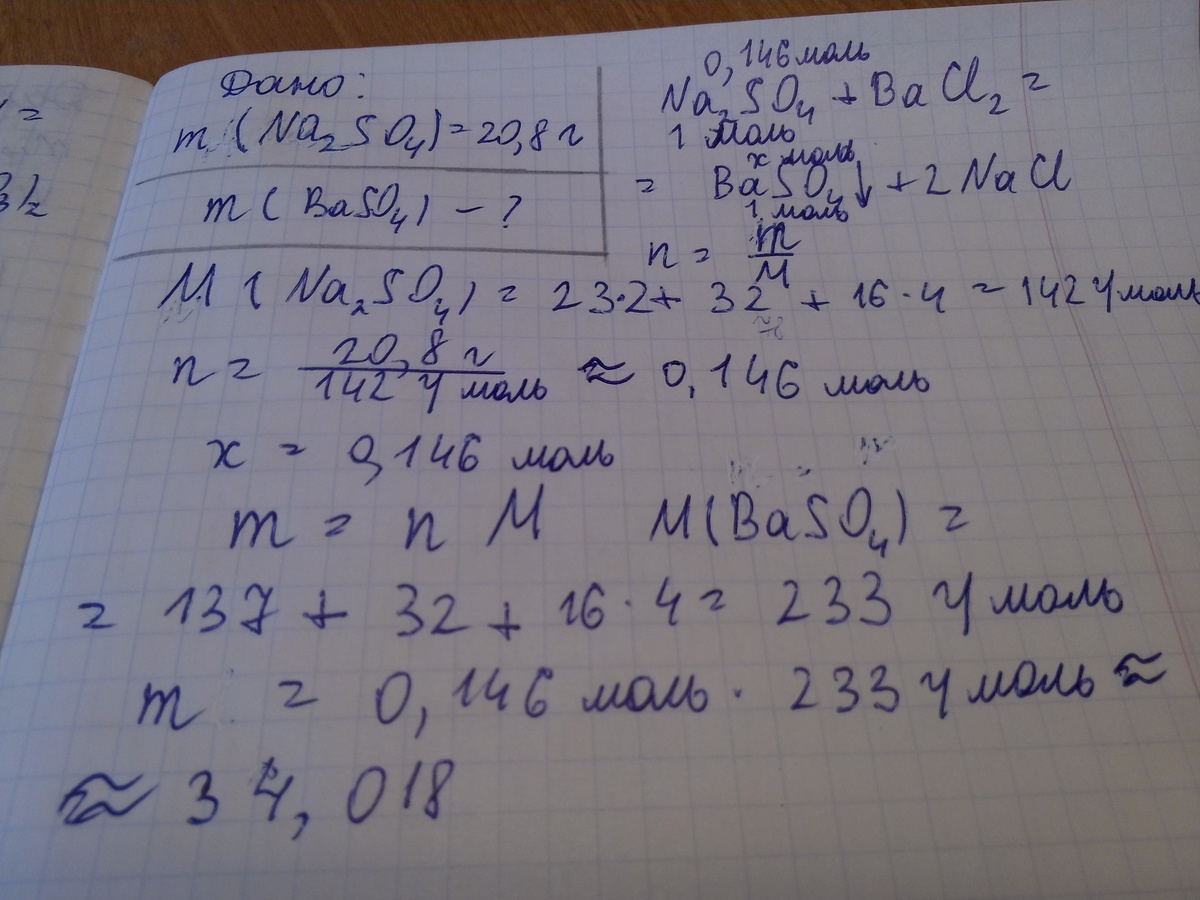 Дано:
m (Na₂SO₄) = 20,8 г
m (BaSO₄) – ?
0,146 моль
Na₂SO₄ + BaCl₂ =
1 моль
x моль
= BaSO₄↓ + 2 NaCl
1 моль
n = m/M
M (Na₂SO₄) = 23·2 + 32 + 16·4 = 142 г/моль
n = 20,8 г / 142 г/моль ≈ 0,146 моль
x = 0,146 моль
m = n M M(BaSO₄) =
= 137 + 32 + 16·4 = 233 г/моль
m = 0,146 моль · 233 г/моль ≈
≈ 34,018